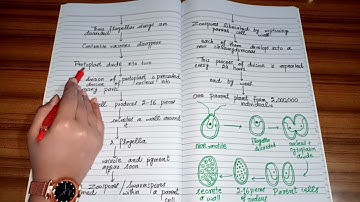 Their flagellar strings are
discarded
Contractile vacuoles disappear
Protoplast divides into two
division of protoplast is preceded
division of nucleus into
many parts
cell produces 2-16 pieces
a wall around it
flagella
vacuole and pigment
appear soon
Zoospores / swarmspores
within a parent
cell
Zoospores liberated by rupturing
parent cell wall
each of them develop into a
new chlamydomonas
This process of division is repeated
every 24 hours
end by well
One parent plant form 2,000,000
individuals
non-motile
flagella
discarded
nucleus &
cytoplasm
divide
secrete
a wall
2-16 pieces
of nucleus
Parent cells